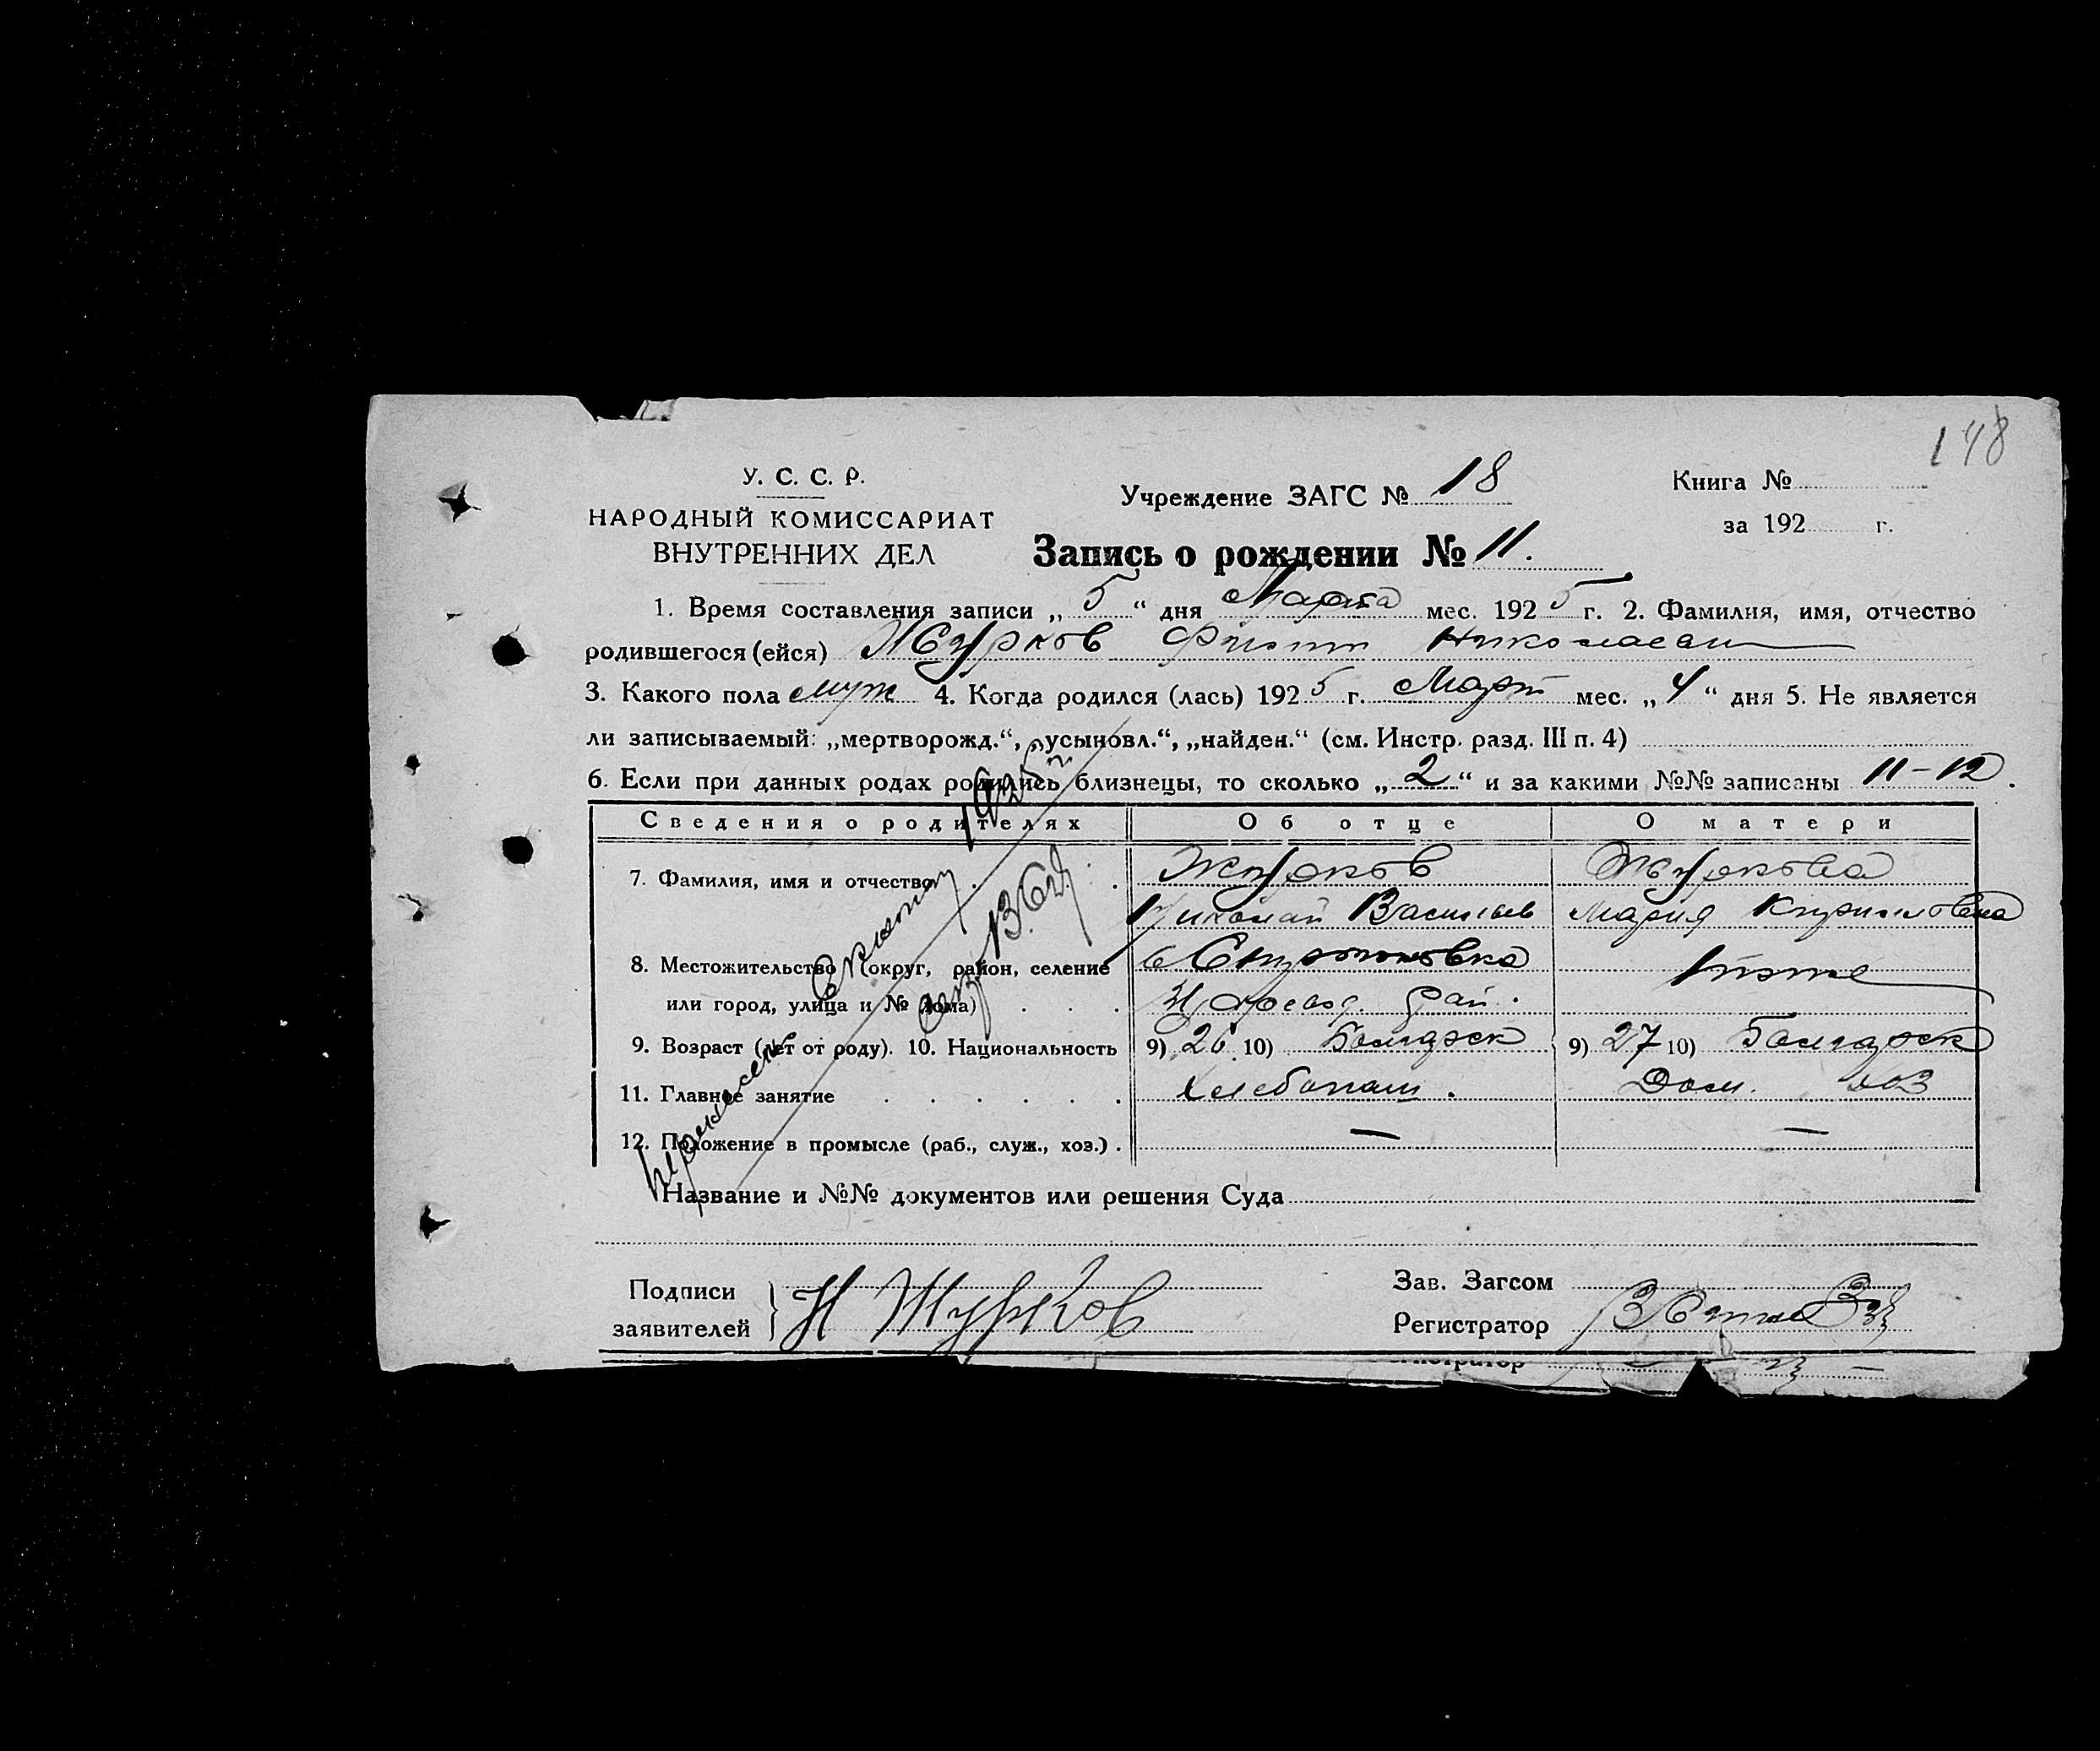 148
У. С. С. Р.
НАРОДНЫЙ КОМИССАРИАТ
ВНУТРЕННИХ ДЕЛ
Учреждение ЗАГС № 18
Книга №
за 192 г.
Запись о рождении № 11.
1. Время составления записи „ 5 “ дня Марта мес. 192 5 г. 2. Фамилия, имя, отчество
родившегося (ейся) Журков Николаевич
3. Какого пола муж 4. Когда родился (лась) 192 5 г. Март мес. „ 4 “ дня 5. Не является
ли записываемый: „мертворожд.“, „усыновл.“, „найден.“ (см. Инстр. разд. III п. 4)
6. Если при данных родах родились близнецы, то сколько „ 2 “ и за какими №№ записаны 11-12.
Сведения о родителях Об отце О матери
7. Фамилия, имя и отчество . . Журков Журкова
Николай Васильев Мария Кирилловна
8. Местожительство (округ, район, селение
или город, улица и № дома) . . . рай.
9. Возраст (лет от роду). 10. Национальность 9) 26 10) Болгарск 9) 27 10) Болгарск
11. Главное занятие . . . . . . Хлебопаш. Дом. хоз
12. Положение в промысле (раб., служ., хоз.) . — —
Название и №№ документов или решения Суда
1925 г
Подписи
заявителей } Н Журков
Зав. Загсом
Регистратор